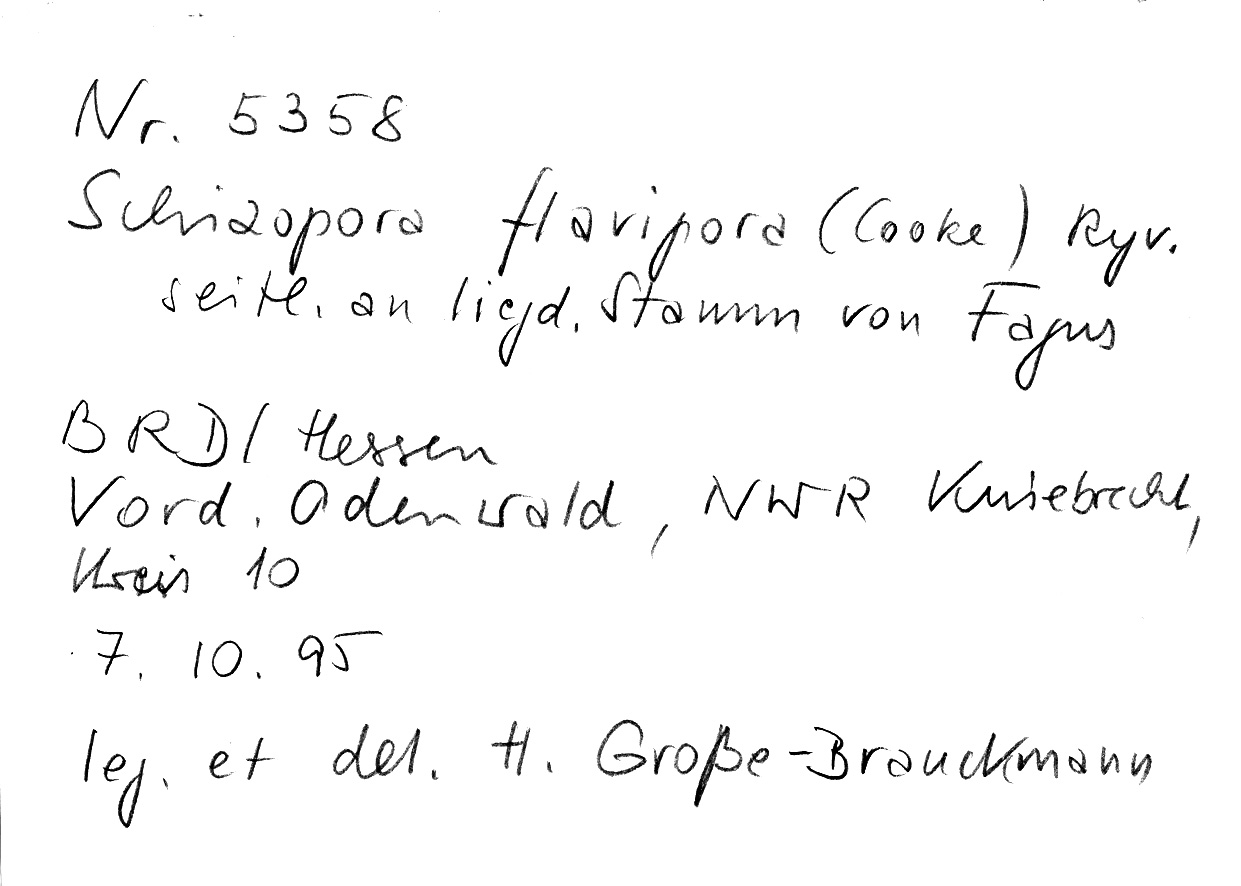 Nr. 5358
Schizopora flavipora (Cooke) Ryv.
seitl. an liegd. Stamm von Fagus
BRD/ Hessen
Vord. Odenwald, NWR Kniebrecht,
Kreis 10
7. 10. 95
leg. et det. H. Große-Brauckmann